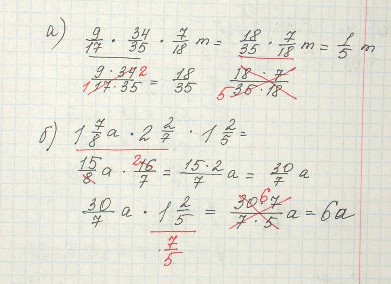 а) 9/17 · 34/35 · 7/18 m = 18/35 · 7/18 m = 1/5 m
9·34 2 / 1 17·35 = 18/35 18·7 / 5 35·18
б) 1 7/8 a · 2 2/7 · 1 2/5 =
15/8 a · 2 16/7 = 15·2/7 a = 30/7 a
30/7 a · 1 2/5 = 30 6 7 / 7·5 a = 6a
· 7/5